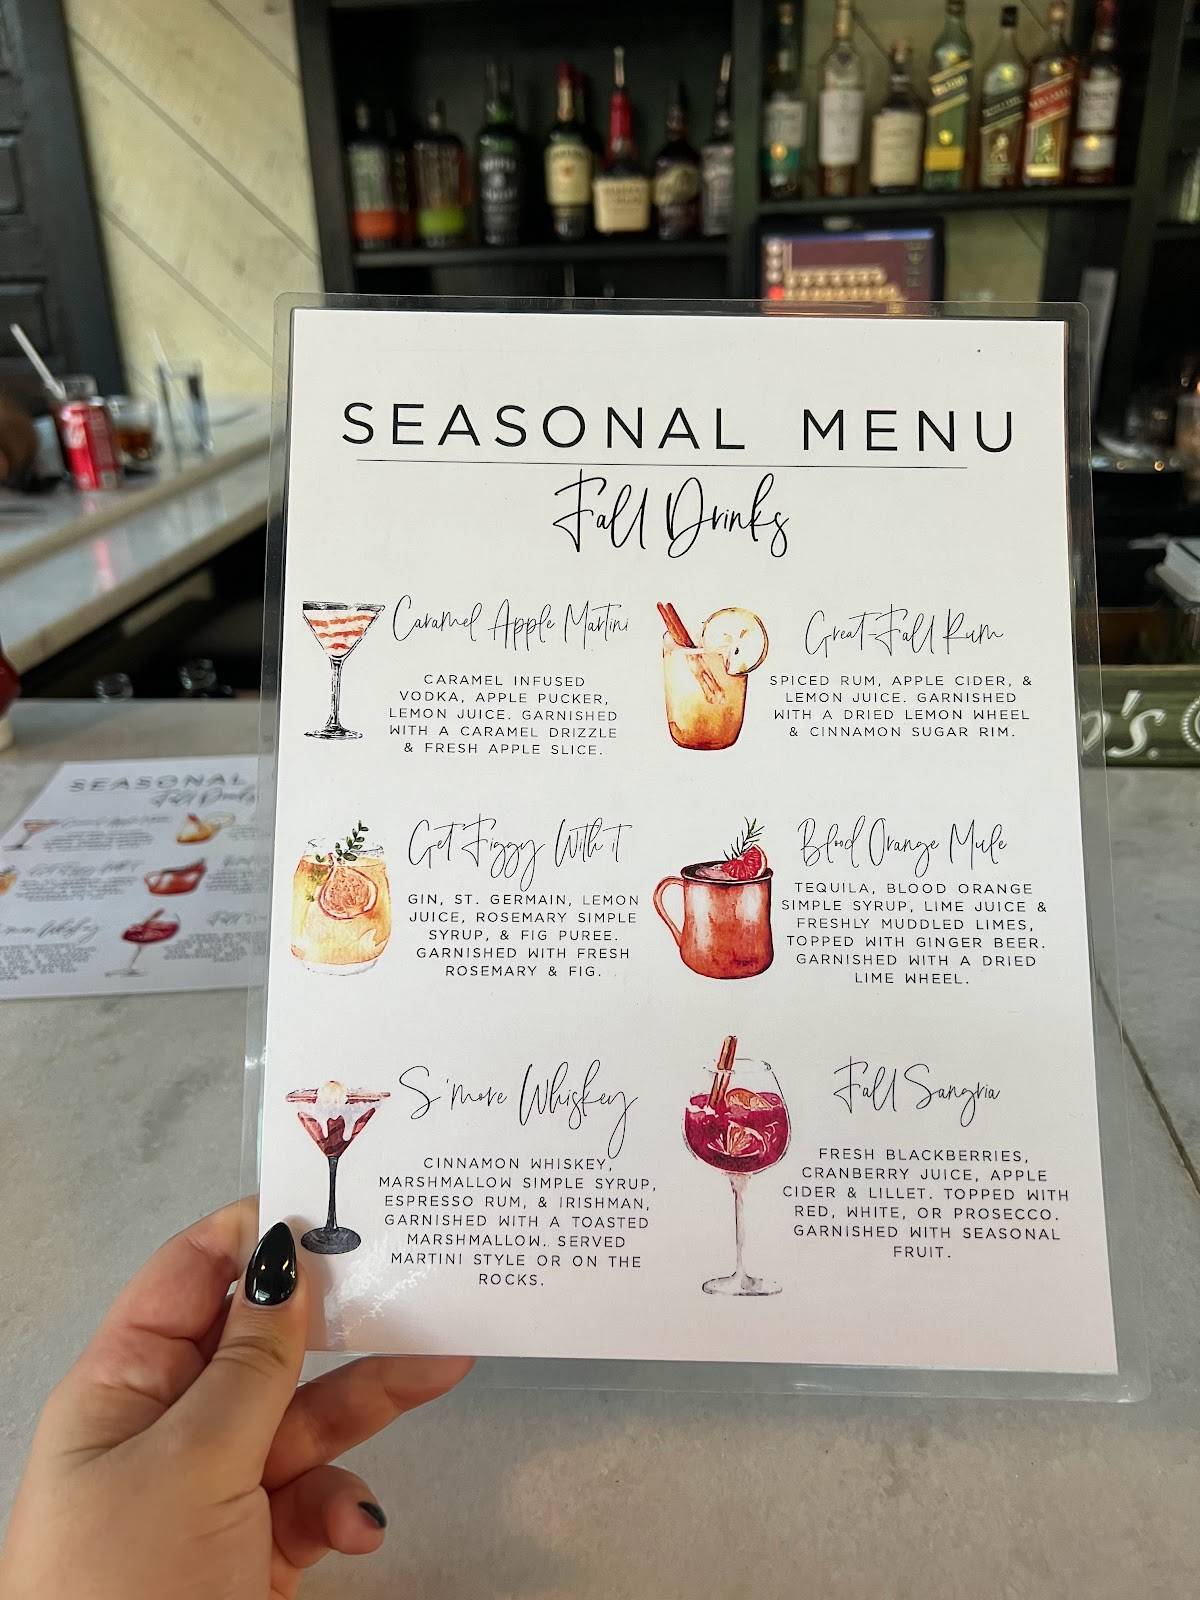 SEASONAL MENU
Fall Drinks
Caramel Apple Martini
CARAMEL INFUSED
VODKA, APPLE PUCKER,
LEMON JUICE. GARNISHED
WITH A CARAMEL DRIZZLE
& FRESH APPLE SLICE.
Great-Fall Rum
SPICED RUM, APPLE CIDER, &
LEMON JUICE. GARNISHED
WITH A DRIED LEMON WHEEL
& CINNAMON SUGAR RIM.
Get Figgy With it
GIN, ST. GERMAIN, LEMON
JUICE, ROSEMARY SIMPLE
SYRUP, & FIG PUREE.
GARNISHED WITH FRESH
ROSEMARY & FIG.
Blood Orange Mule
TEQUILA, BLOOD ORANGE
SIMPLE SYRUP, LIME JUICE &
FRESHLY MUDDLED LIMES,
TOPPED WITH GINGER BEER.
GARNISHED WITH A DRIED
LIME WHEEL.
S'more Whiskey
CINNAMON WHISKEY,
MARSHMALLOW SIMPLE SYRUP,
ESPRESSO RUM, & IRISHMAN,
GARNISHED WITH A TOASTED
MARSHMALLOW. SERVED
MARTINI STYLE OR ON THE
ROCKS.
Fall Sangria
FRESH BLACKBERRIES,
CRANBERRY JUICE, APPLE
CIDER & LILLET. TOPPED WITH
RED, WHITE, OR PROSECCO.
GARNISHED WITH SEASONAL
FRUIT.
SEASONAL